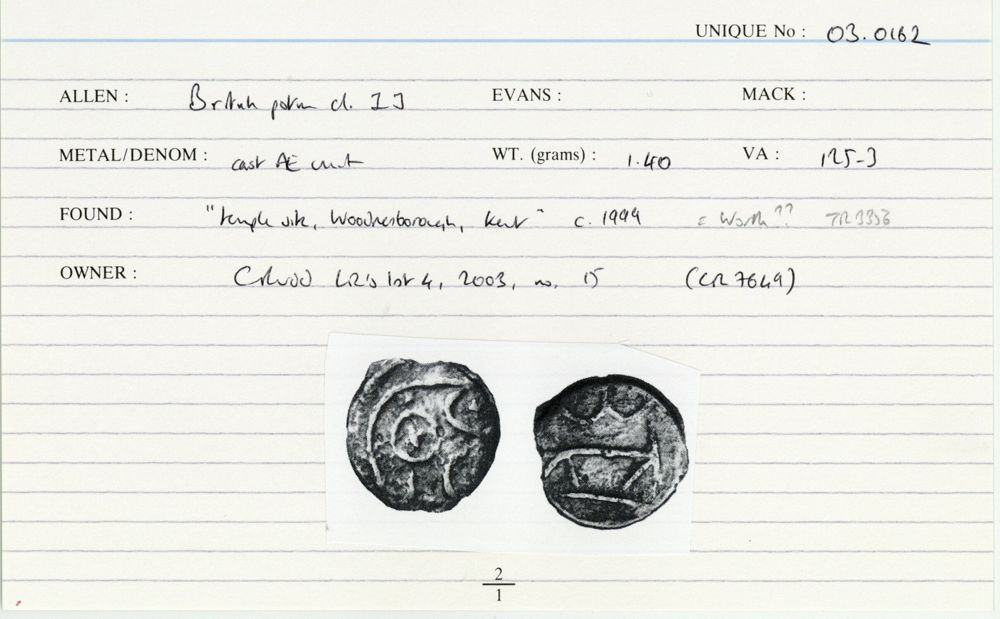 UNIQUE No : 03.0162
ALLEN : British potin cl. II EVANS : MACK :
METAL/DENOM : cast AE unit WT. (grams) : 1.40 VA : 125-3
FOUND : "temple site, Woodnesborough, Kent" c. 1999 = Worth?? TR 3356
OWNER : list 4, 2003, no. 15 (CR 7649)
2
1